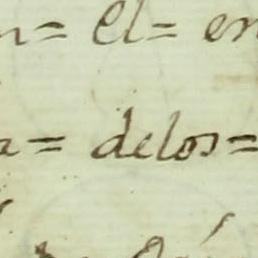 n= El= en
a= delos=